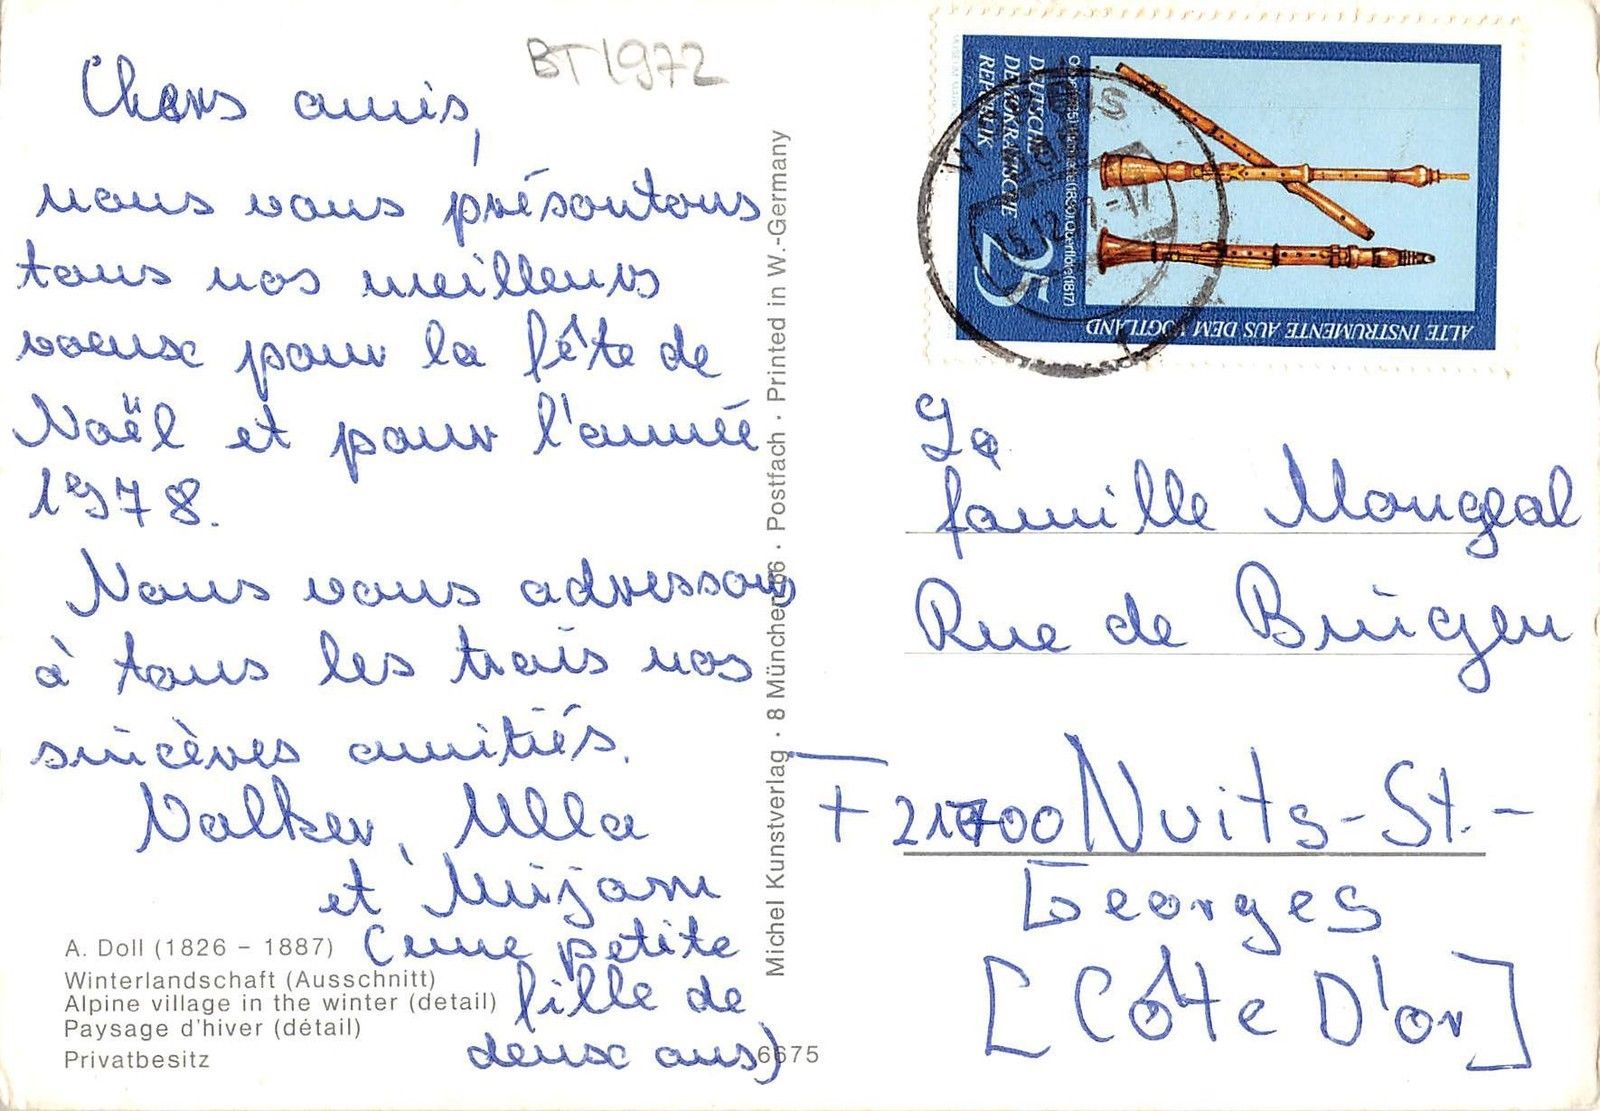 BT1972
Chers amis,
nous vous présentons
tous nos meilleurs
voeux pour la fête de
Noël et pour l'année
1978.
Nous vous adressons
à tous les trois nos
sincères amitiés.
Volker, Ulla
et Mirjam
(une petite
fille de
deux ans)
A. Doll (1826 – 1887)
Winterlandschaft (Ausschnitt)
Alpine village in the winter (detail)
Paysage d'hiver (détail)
Privatbesitz
6675
Michel Kunstverlag · 8 München 66 · Postfach · Printed in W.-Germany
DEUTSCHE
DEMOKRATISCHE
REPUBLIK
25
ALTE INSTRUMENTE AUS DEM VOGTLAND
La
famille Mongeal
Rue de Bingen
F 21700 Nuits-St.-
Georges
[Côte D'or]